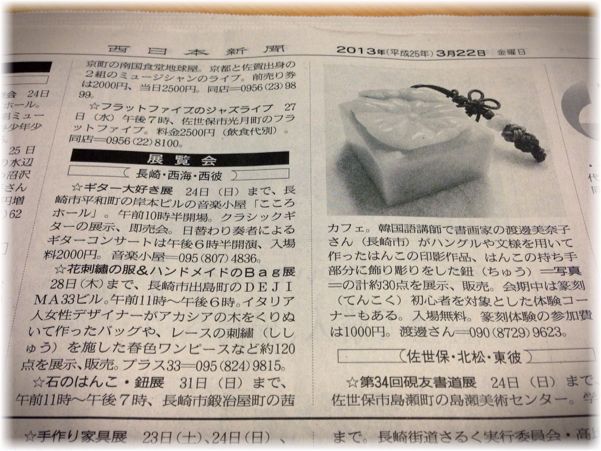 西日本新聞
2013年(平成25年)3月22日 金曜日
京町の南国食堂地球屋。京都と佐賀出身の
2組のミュージシャンのライブ。前売り券
は2000円、当日2500円。同店＝0956(23)98
99。
☆フラットファイブのジャズライブ 27
日(水)午後7時、佐世保市光月町のフラ
ットファイブ。料金2500円(飲食代別)。
同店＝0956(22)8100。
展覧会
(長崎・西海・西彼)
☆ギター大好き展 24日(日)まで、長
崎市平和町の岸本ビルの音楽小屋「こころ
ホール」。午前10時半開場。クラシックギ
ターの展示、即売会。日替わり奏者による
ギターコンサートは午後6時半開演、入場
料2000円。音楽小屋＝095(807)4836。
☆花刺繡の服&ハンドメイドのBag展
28日(木)まで、長崎市出島町のDEJI
MA33ビル。午前11時～午後6時。イタリア
人女性デザイナーがアカシアの木をくりぬ
いて作ったバッグや、レースの刺繡(ししゅ
う)を施した春色ワンピースなど約120
点を展示、販売。プラス33＝095(824)9815。
☆石のはんこ・鈕展 31日(日)まで、
午前11時～午後7時、長崎市鍛冶屋町の茜
カフェ。韓国語講師で書画家の渡邊美奈子
さん(長崎市)がハングルや文様を用いて
作ったはんこの印影作品、はんこの持ち手
部分に飾り彫りをした鈕(ちゅう)＝写真＝
の計約30点を展示、販売。会期中は篆刻
(てんこく)初心者を対象とした体験コー
ナーもある。入場無料。篆刻体験の参加費
は1000円。渡邊さん＝090(8729)9623。
(佐世保・北松・東彼)
☆第34回硯友書道展 24日(日)まで、
佐世保市島瀬町の島瀬美術センター。学
☆手作り家具展 23日(土)、24日(日)、
まで。長崎街道さるく実行委員会・高